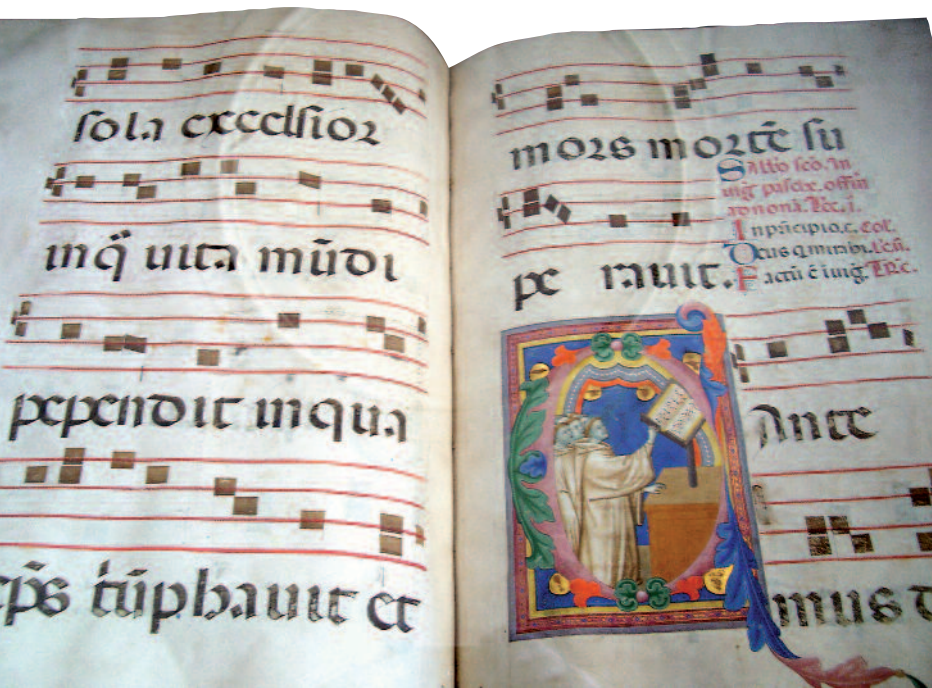 sola excelsior
inq̄ uita mūdi
pependit in qua
x̄p̄s t̄ūphauit et
mors mortē su
Sabb̄o sc̄o. In
uigͥ pasche. offm̄
ad nonā. Lec. i.
In pͥncipio, c. Col.
Deus q mirabi. Lecͦ.
pe rauit. Factū ē i uig̓. Tr̄c.
Ante
mus d